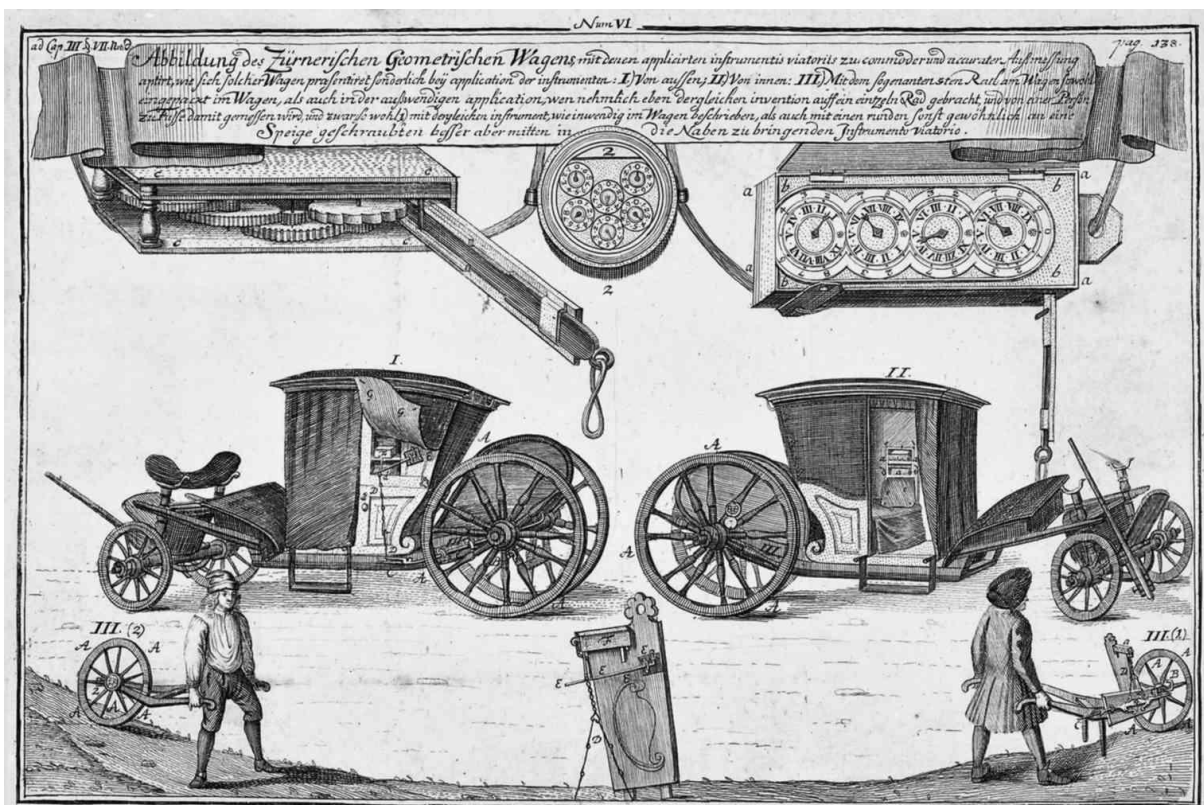 Num VI.
ad Cap. III §. VII. Not.
pag. 138.
Abbildung des Zürnerischen Geometrischen Wagens mit denen applicirten instrumentis viatoriis zu commoder und accuraten Ausmessung
aptirt, wie sich solcher Wagen præsentiret sonderlich bey application der instrumenten: I) Von aussen; II) Von innen: III) Mit dem sogenanten 5ten Rad im Wagen sowohl
eingepackt im Wagen, als auch in der auswendigen application, wen nehmlich eben dergleichen invention auff ein eintzeln Rad gebracht, und von einer Person
zu Fusse damit gemessen wird, und zwar so wohl 1) mit dergleichen instrument, wie inwendig im Wagen beschrieben, als auch mit einen runden sonst gewöhnlich an eine
Speige geschraubten besser aber mitten in die Naben zu bringenden Instrumento viatorio.
c c
c c
2
2
a b b a
a b b a
I.
II.
G G
A A
A A
III
A A
III. (2)
III. (1)
A A
A A A
F
E E
D
A A
B B
A